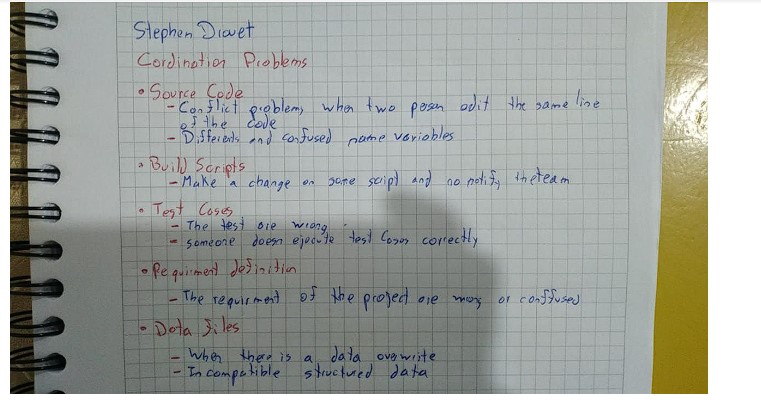 Stephen Drouet
Cordination Problems
• Source Code
– Conflict problems when two person edit the same line
of the code
– Differents and confused name variables
• Build Scripts
– Make a change on some script and no notify the team
• Test Cases
– The test are wrong
– someone doesn ejecute test Cases correctly
• Requirment definition
– The requirment of the project are or conffused
• Data files
– When there is a data overwrite
– Incompatible structured data